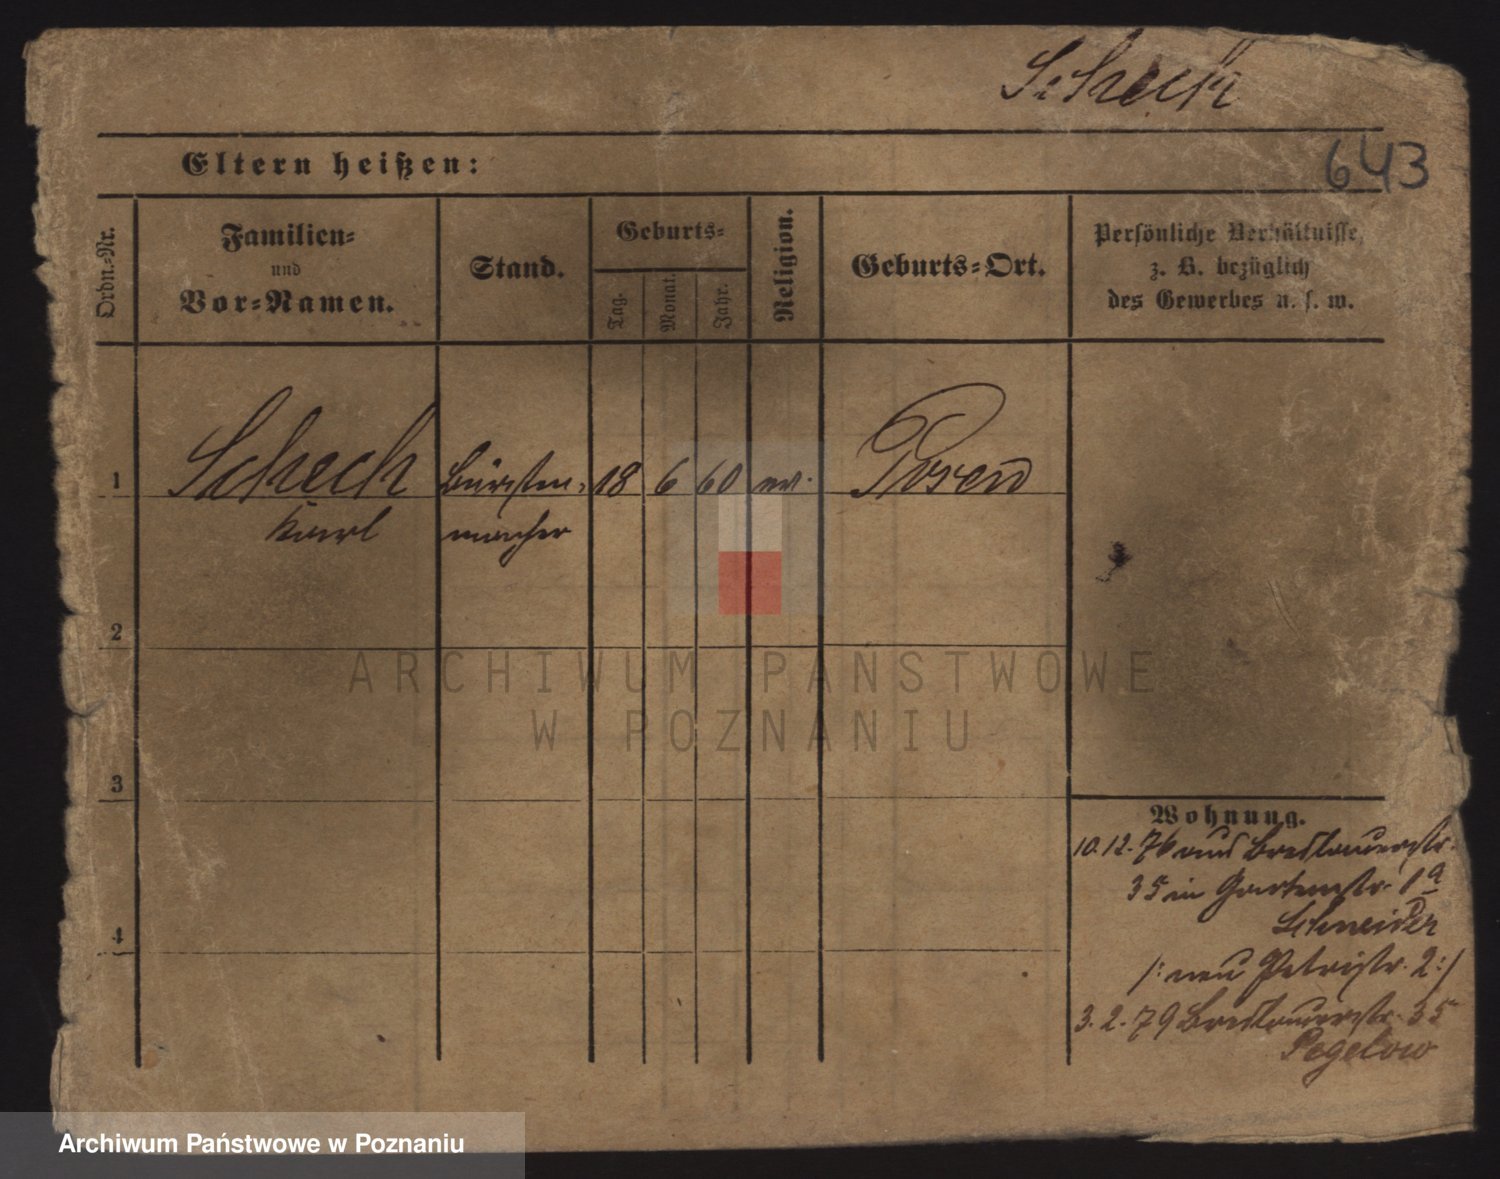 Scheck
643
Eltern heißen:
Ordn.-Nr.
Familien-
und
Vor-Namen.
Stand.
Geburts-
Tag.
Monat.
Jahr.
Religion.
Geburts-Ort.
Persönliche Verhältnisse,
z. B. bezüglich
des Gewerbes u. s. w.
1 Scheck Bürsten- 18 6 60 ev. Posen
Karl macher
2
ARCHIWUM PAŃSTWOWE
W POZNANIU
3
Wohnung.
10.12.76 aus Breslauerstr.
35 in Gartenstr. 1a
4
Schneider
/: neu Petristr. 2 :/
3.2.79 Breslauerstr. 35
Pegelow
Archiwum Państwowe w Poznaniu